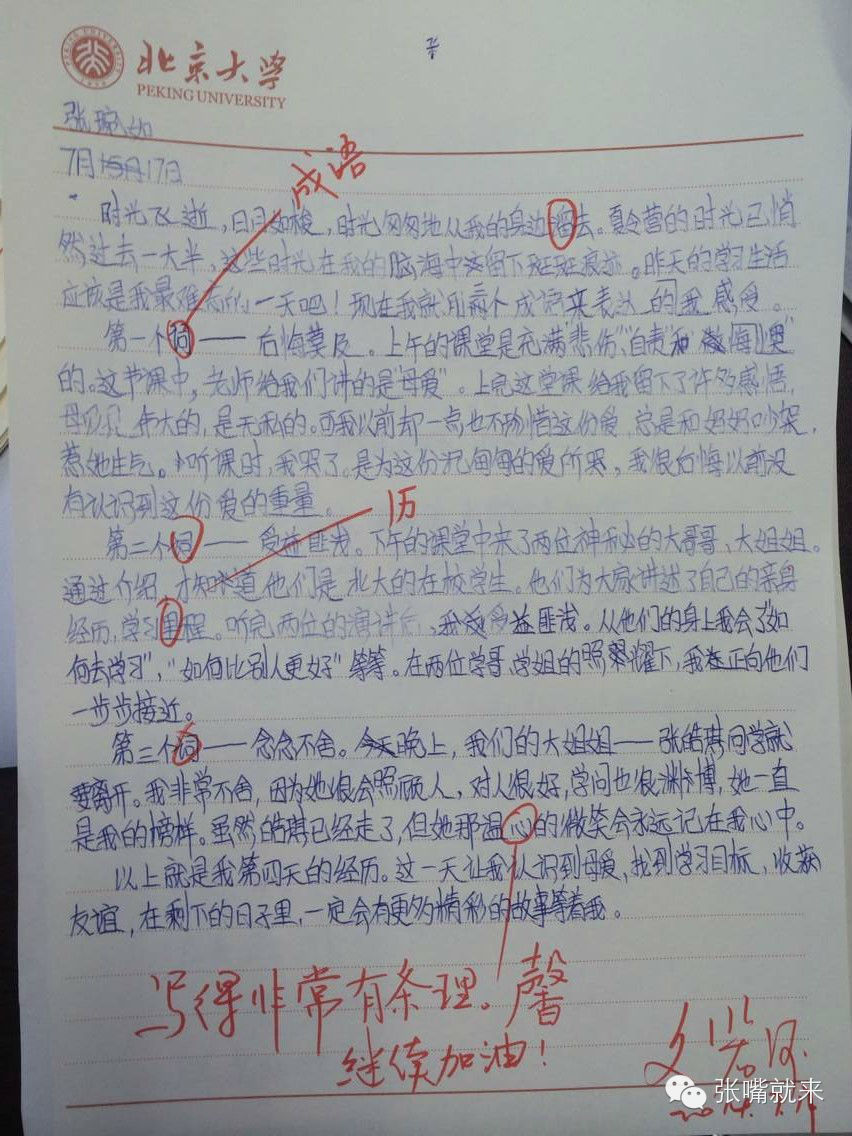 北京大学
PEKING UNIVERSITY
7月17日
成语
时光飞逝，日月如梭，时光匆匆地从我的身边溜去。夏令营的时光已悄
然过去一大半，这些时光在我的脑海中留下斑斑痕迹。昨天的学习生活
应该是我最难忘的一天吧！现在我就用三个成语来表达的我感受。
第一个词——后悔莫及。上午的课堂是充满“悲伤”、“自责”和“懊悔”
的。这节课中，老师给我们讲的是“母爱”。上完这堂课给我留下了许多感悟，
母爱是伟大的，是无私的。可我以前却一点也不珍惜这份爱，总是和妈妈吵架，
惹她生气。听课时，我哭了。是为这份沉甸甸的爱所哭，我很后悔以前没
有认识到这份爱的重量。
历
第二个词——受益匪浅。下午的课堂中来了两位神秘的大哥哥，大姐姐。
通过介绍，才知道他们是北大的在校学生。他们为大家讲述了自己的亲身
经历，学习里程。听完两位的演讲后，我受益匪浅。从他们的身上我会了“如
何去学习”，“如何比别人更好”等等。在两位学哥、学姐的照耀下，我正向他们
一步步接近。
第三个词——念念不舍。晚上，我们的大姐姐——张皓琪同学就
要离开。我非常不舍，因为她很会照顾人，对人很好，学问也很渊博，她一直
是我的榜样。虽然皓琪已经走了，但她那温心的微笑会永远记在我心中。
以上就是我第四天的经历。这一天让我认识到母爱，找到学习目标，收获
友谊，在剩下的日子里，一定会有更多精彩的故事等着我。
写得非常有条理。馨
继续加油！
张嘴就来